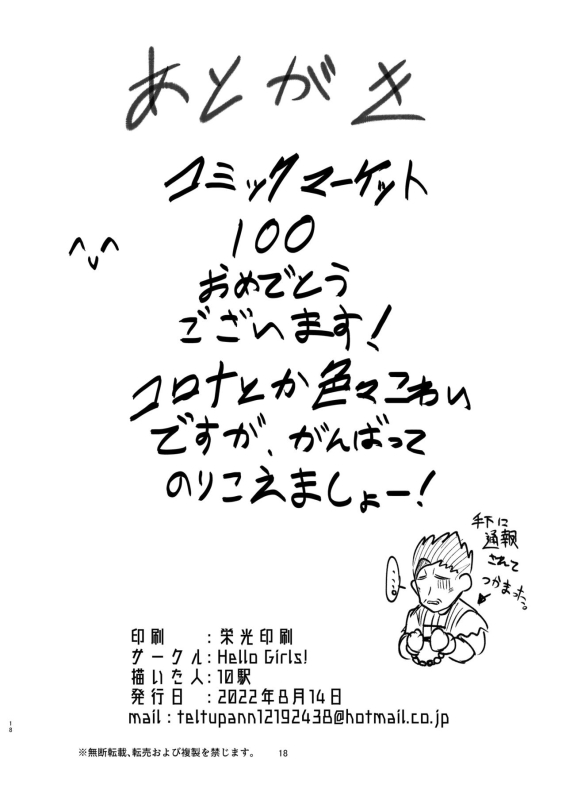 あとがき
コミックマーケット
100
おめでとう
ございます！
コロナとか色々こわい
ですが、がんばって
のりこえましょー！
手下に
通報
されて
つかまった。
印刷　　：栄光印刷
サークル：Hello Girls!
描いた人：10駅
発行日　：2022年8月14日
mail：teltupann12192438@hotmail.co.jp
※無断転載、転売および複製を禁じます。
18
18